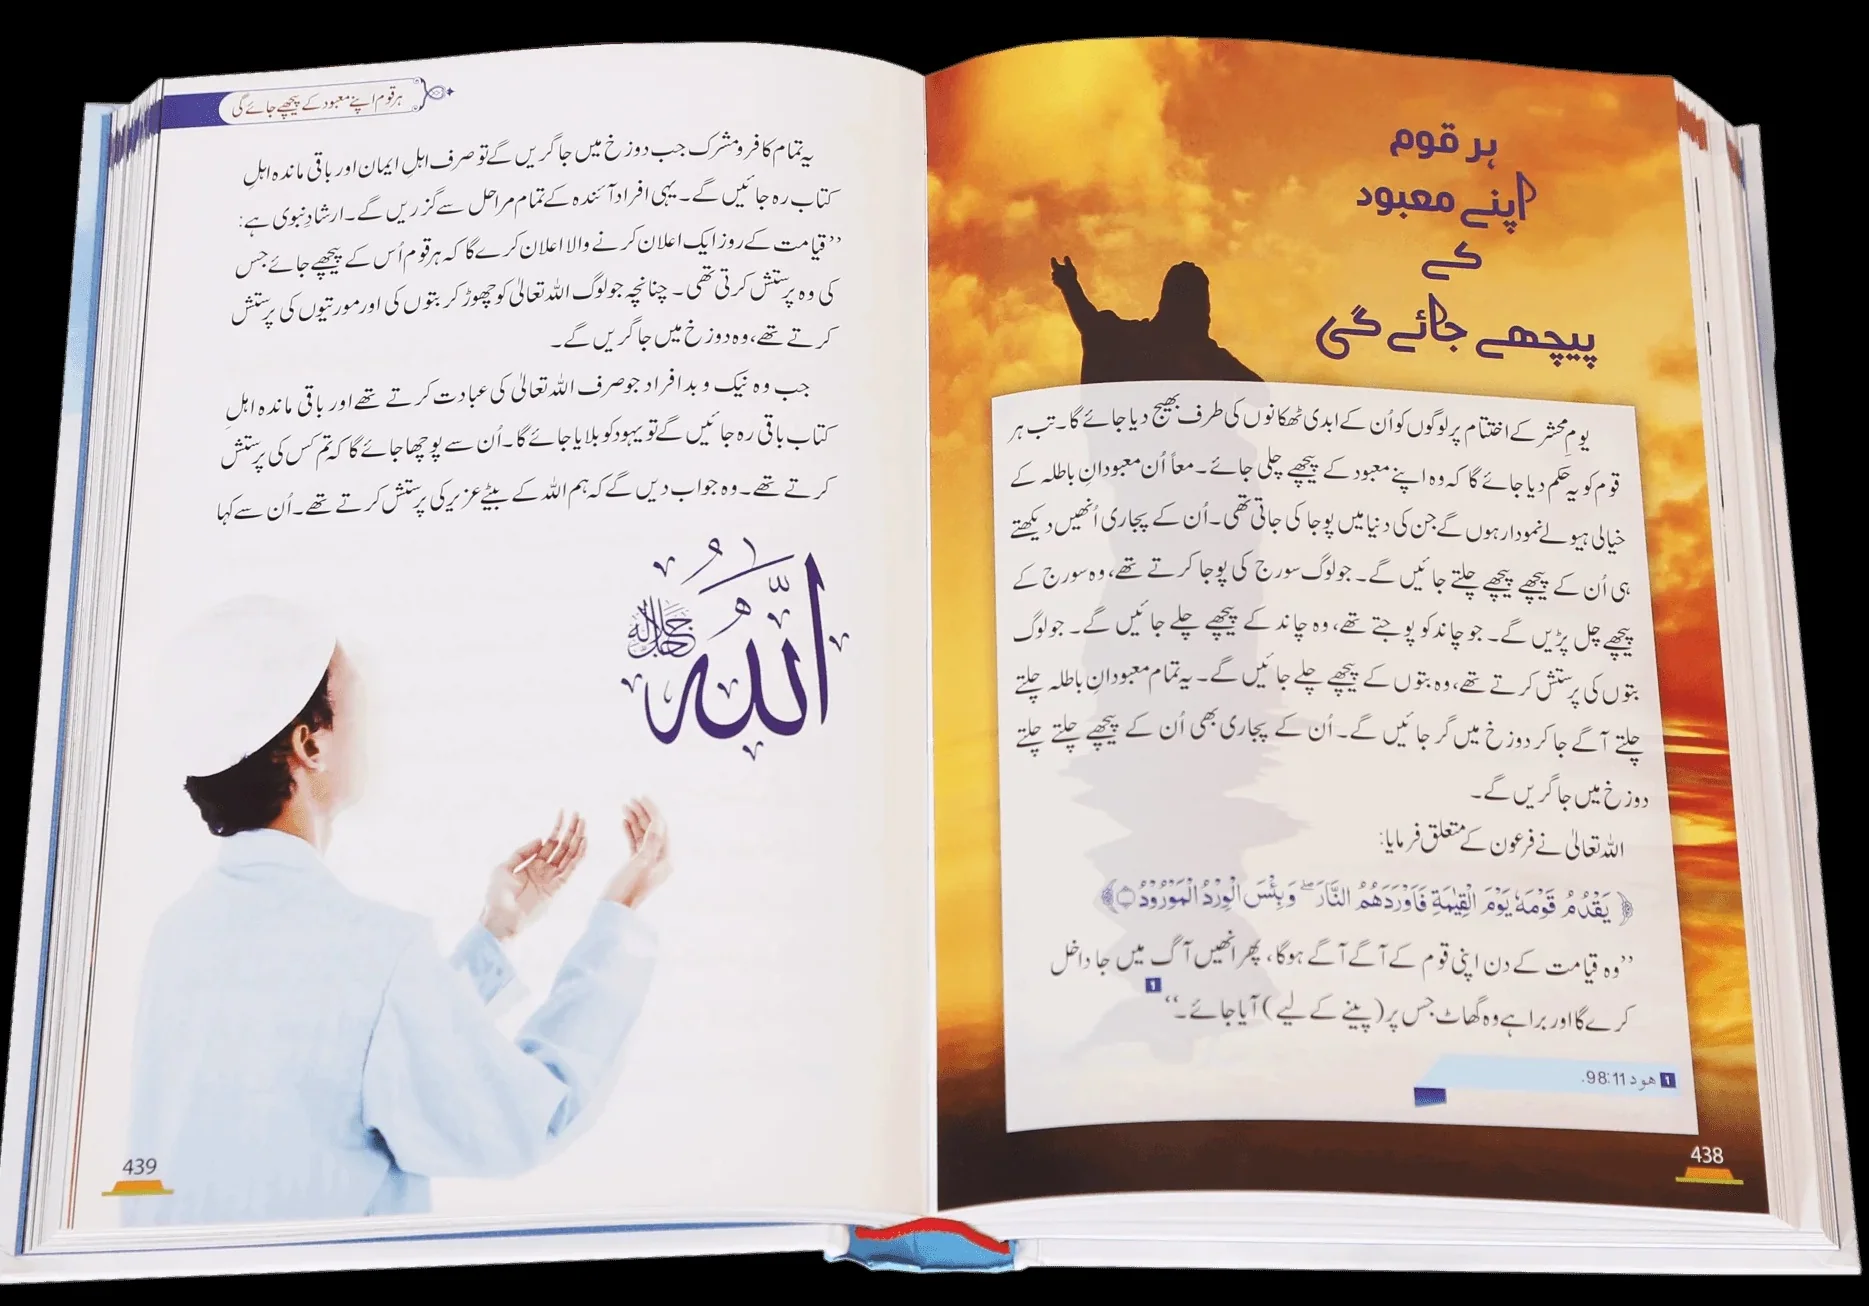 ہر قوم
اپنے معبود
کے
پیچھے جائے گی
یومِ محشر کے اختتام پر لوگوں کو اُن کے ابدی ٹھکانوں کی طرف بھیج دیا جائے گا۔ تب ہر
قوم کو یہ حکم دیا جائے گا کہ وہ اپنے معبود کے پیچھے چلی جائے۔ معاً اُن معبودانِ باطلہ کے
خیالی ہیولے نمودار ہوں گے جن کی دنیا میں پوجا کی جاتی تھی۔ اُن کے پجاری اُنھیں دیکھتے
ہی اُن کے پیچھے پیچھے چلتے جائیں گے۔ جو لوگ سورج کی پوجا کرتے تھے، وہ سورج کے
پیچھے چل پڑیں گے۔ جو چاند کو پوجتے تھے، وہ چاند کے پیچھے چلے جائیں گے۔ جو لوگ
بتوں کی پرستش کرتے تھے، وہ بتوں کے پیچھے چلے جائیں گے۔ یہ تمام معبودانِ باطلہ چلتے
چلتے آگے جا کر دوزخ میں گر جائیں گے۔ اُن کے پجاری بھی اُن کے پیچھے چلتے چلتے
دوزخ میں جا گریں گے۔
اللہ تعالیٰ نے فرعون کے متعلق فرمایا:
﴿يَقْدُمُ قَوْمَهٗ يَوْمَ الْقِيٰمَةِ فَاَوْرَدَهُمُ النَّارَ ۖ وَبِئْسَ الْوِرْدُ الْمَوْرُوْدُ﴾
’’وہ قیامت کے دن اپنی قوم کے آگے آگے ہوگا، پھر انھیں آگ میں جا داخل
کرے گا اور برا ہے وہ گھاٹ جس پر (پینے کے لیے) آیا جائے۔‘‘ 1
1 ھود 98:11.
438
ہر قوم اپنے معبود کے پیچھے جائے گی
یہ تمام کافر و مشرک جب دوزخ میں جا گریں گے تو صرف اہلِ ایمان اور باقی ماندہ اہلِ
کتاب رہ جائیں گے۔ یہی افراد آئندہ کے تمام مراحل سے گزریں گے۔ ارشادِ نبوی ہے:
’’قیامت کے روز ایک اعلان کرنے والا اعلان کرے گا کہ ہر قوم اُس کے پیچھے جائے جس
کی وہ پرستش کرتی تھی۔ چنانچہ جو لوگ اللہ تعالیٰ کو چھوڑ کر بتوں کی اور مورتیوں کی پرستش
کرتے تھے، وہ دوزخ میں جا گریں گے۔
جب وہ نیک و بد افراد جو صرف اللہ تعالیٰ کی عبادت کرتے تھے اور باقی ماندہ اہلِ
کتاب باقی رہ جائیں گے تو یہود کو بلایا جائے گا۔ اُن سے پوچھا جائے گا کہ تم کس کی پرستش
کرتے تھے۔ وہ جواب دیں گے کہ ہم اللہ کے بیٹے عزیر کی پرستش کرتے تھے۔ اُن سے کہا
اللّٰه جل جلاله
439